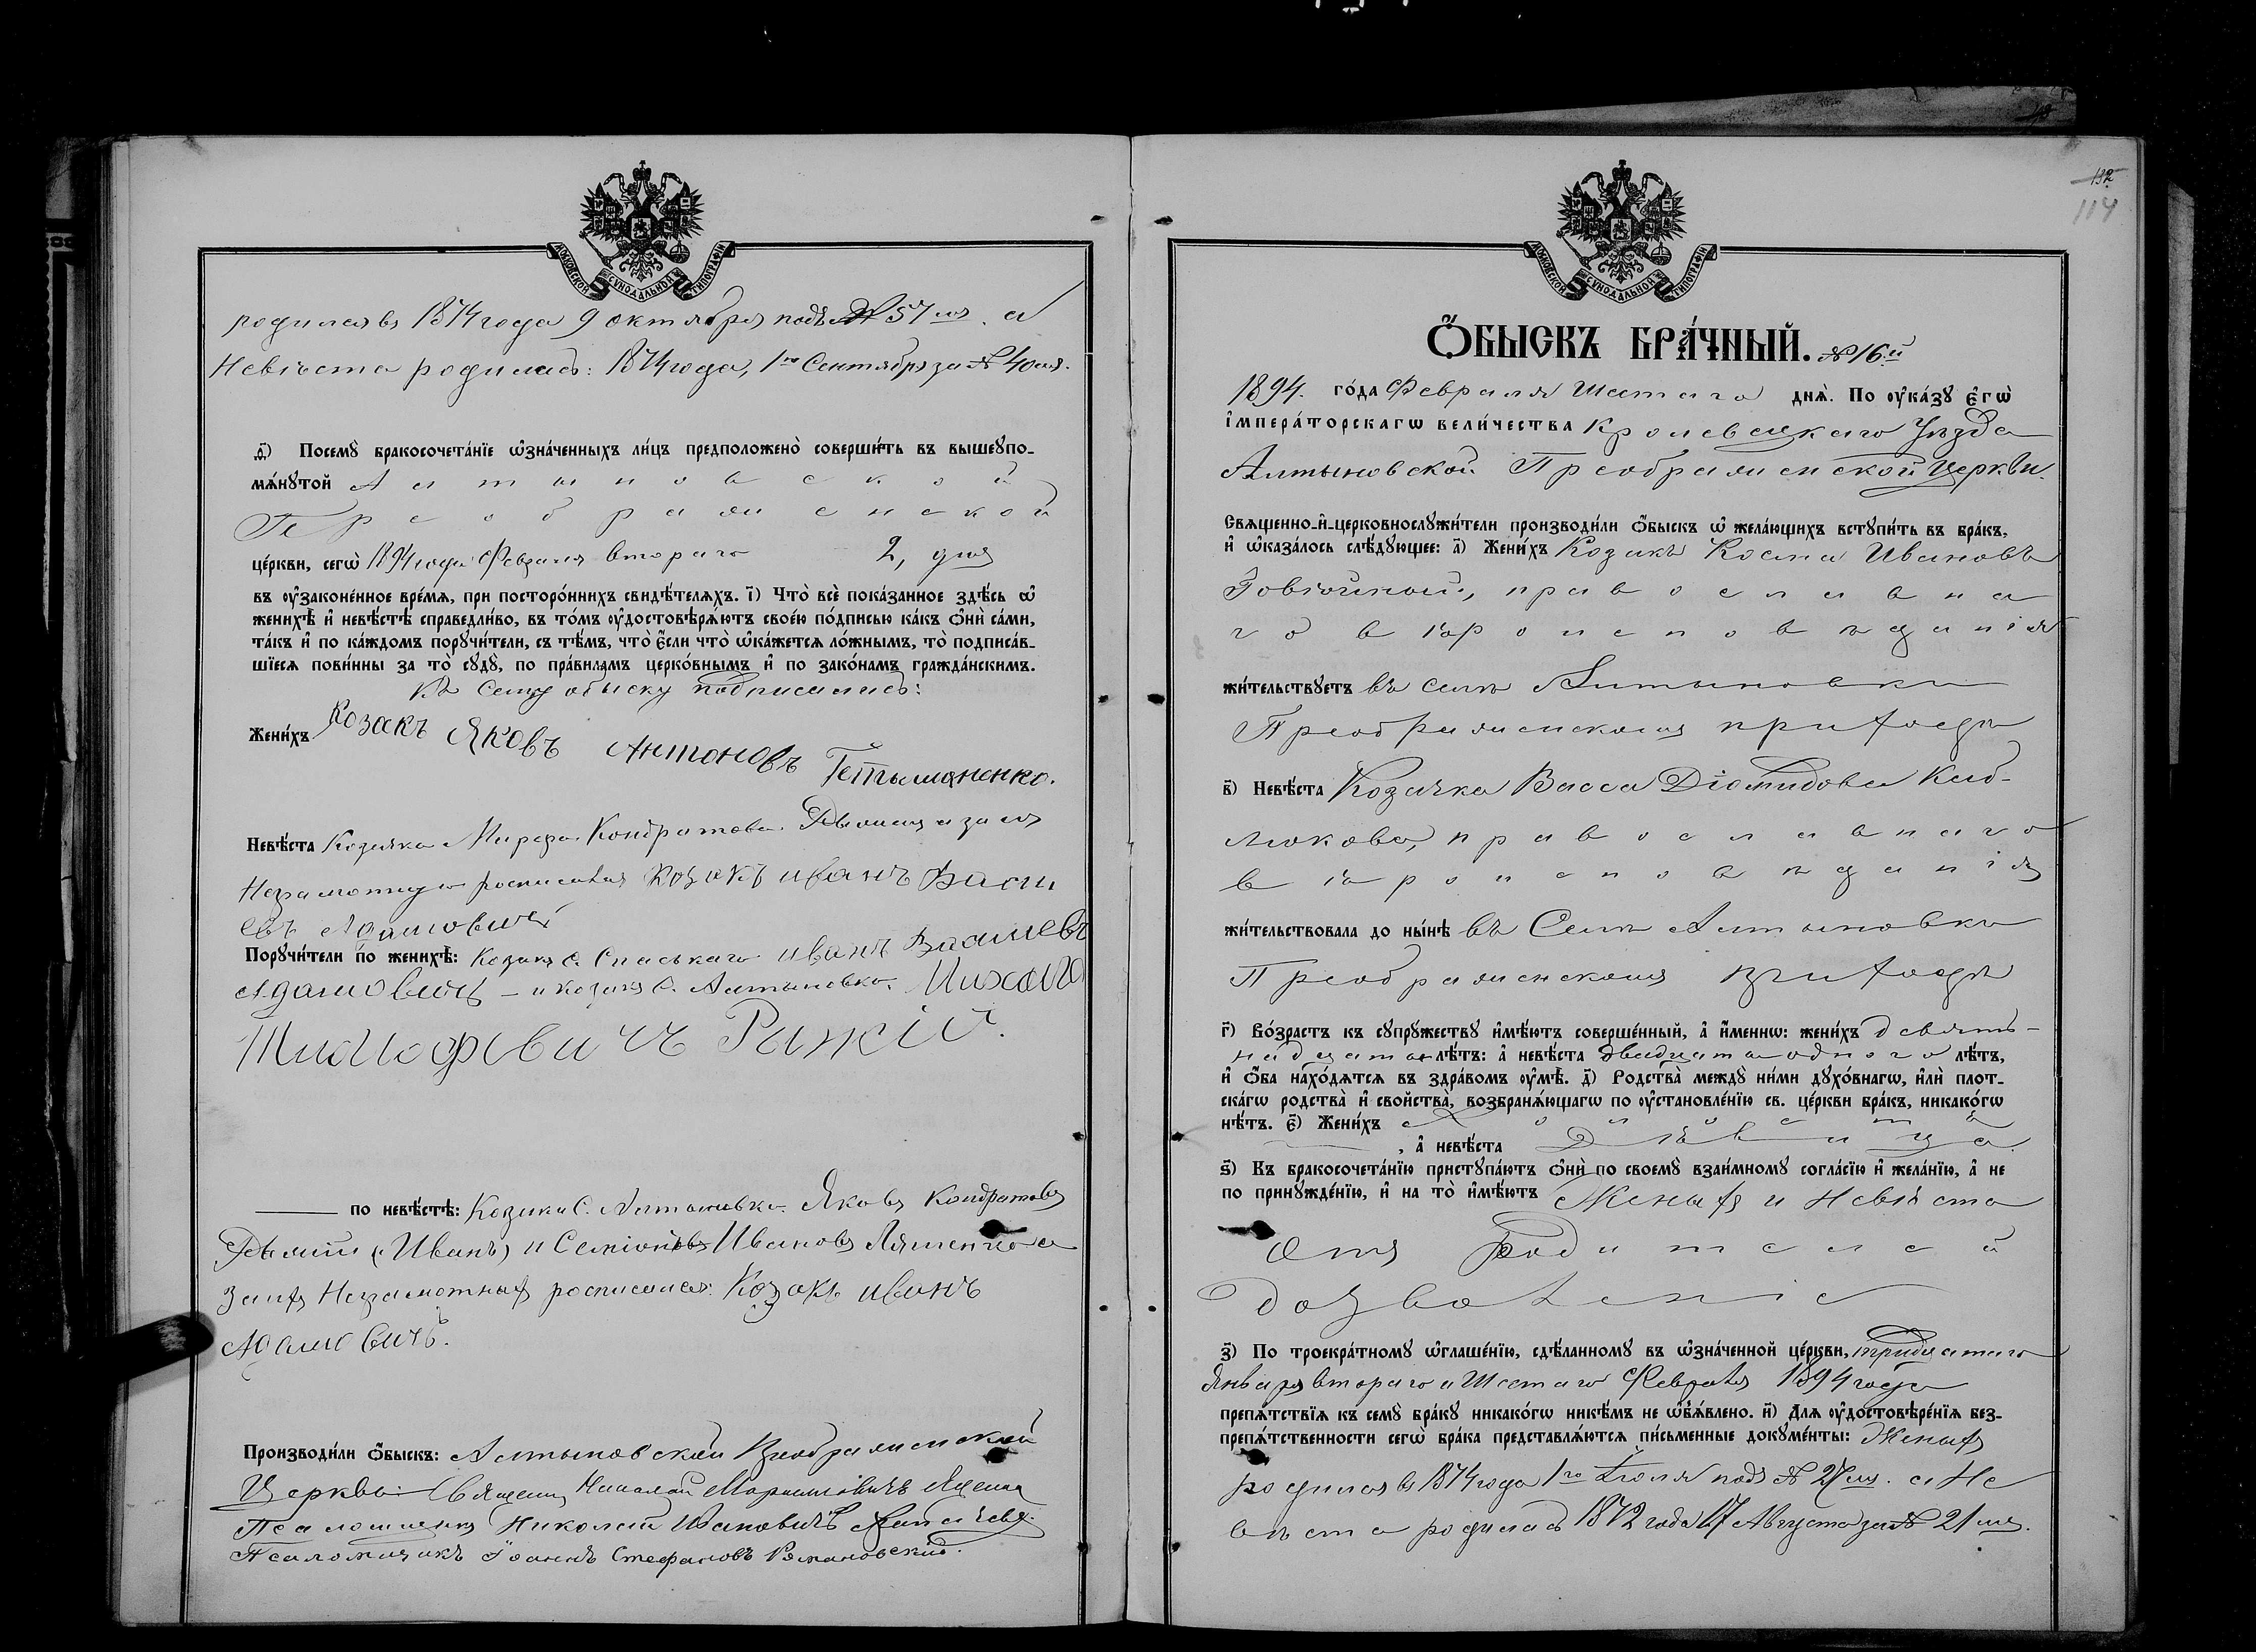 МОСКОВСКОЙ СѴНОДАЛЬНОЙ ТИПОГРАФІИ
родился въ 1874 года 9 октября подъ № 57 мъ. а
Невѣста родилась: 1874 года, 1го Сентября за № 40мъ.
ѳ҃) Посемꙋ бракосочета́нїе ѡ҆зна́ченныхъ ли́цъ предположено̀ соверши́ть въ вышеꙋпо-
мѧ́нꙋтой Алтыновской
Преображенской
це́ркви, сегѡ̀ 1894 года Февраля втораго 2, дня
въ ᲂу҆законе́нное вре́мѧ, при посторо́ннихъ свидѣ́телѧхъ. і҃) Что̀ всѐ пока́занное здѣ́сь ѡ҆
женихѣ̀ и҆ невѣ́стѣ справедли́во, въ то́мъ ᲂу҆достовѣрѧ́ютъ свое́ю по́дписью ка́къ ѻ҆нѝ са́ми,
та́къ и҆ по ка́ждомъ порꙋчи́тели, съ тѣ́мъ, что̀ є҆́сли что̀ ѡ҆ка́жетсѧ ло́жнымъ, то̀ подписа́в-
шїесѧ пови́нны за то̀ сꙋдꙋ̀, по пра́виламъ церко́внымъ и҆ по зако́намъ гражда́нскимъ.
Къ сему обыску подписались:
Жени́хъ Козакъ Яковъ Антоновъ Гетьманенко.
Невѣ́ста Козачка Кондратова а за ея
Неграмотную росписался козакъ иванъ Васи
евъ Адамовичъ
Порꙋчи́тели по женихѣ̀: Козакъ с. Спаськаго иванъ Васильевъ
Адамовичъ – и козакъ с. Алтыновки Михаилъ
Тимофѣевичъ Рижій.
по невѣ́стѣ: Козаки с. Алтыновки Яковъ Кондратовъ
(Иванъ) и Семіонъ Ивановъ Ляшенко а
за ихъ Неграмотныхъ росписался: Козакъ иванъ
Адамовичъ.
Производи́ли ѻ҆́быскъ: Алтыновской Преображенской
Церкви Священ. Николай
Псаломщикъ Николай Ивановичъ
Псаломщикъ Іоаннъ Стефановъ Романовский.
112
114
МОСКОВСКОЙ СѴНОДАЛЬНОЙ ТИПОГРАФІИ
Ѻ҆́БЫСКЪ БРА́ЧНЫЙ. № 16.й
1894. го́да Февраля Шестаго днѧ̀. По ᲂу҆ка́зꙋ є҆гѡ̀
і҆мпера́торскагѡ вели́чества Кролевецкаго Уѣзда
Алтыновской Преображенской церкви.
Свѧще́нно-и҆-церковнослꙋжи́тели производи́ли ѻ҆́быскъ ѡ҆ жела́ющихъ встꙋпи́ть въ бра́къ,
и҆ ѡ҆каза́лось слѣ́дꙋющее: а҃) Жени́хъ Козакъ Косма Ивановъ
православна
го вѣроисповѣданія
жи́тельствꙋетъ въ селѣ Алтыновки
Преображенскомъ приходѣ
в҃) Невѣ́ста Козачка Васса Діомидова Каб-
люкова, православнаго
вѣроисповѣданія
жи́тельствовала до ны́нѣ въ Селѣ Алтыновки
Преображенскомъ приходѣ
г҃) Во́зрастъ къ сꙋпрꙋ́жествꙋ и҆мѣ́ютъ соверше́нный, а҆ и҆́менно: жени́хъ девят-
надцати лѣ́тъ: а҆ невѣ́ста двадцати одного лѣ́тъ,
и҆ ѻ҆́ба нахо́дѧтсѧ въ здра́вомъ ᲂу҆мѣ̀. д҃) Родства̀ междꙋ̀ ни́ми дꙋхо́внагѡ, и҆лѝ плот-
ска́гѡ родства̀ и҆ свойства̀, возбранѧ́ющагѡ по ᲂу҆становле́нїю св. це́ркви бра́къ, никако́гѡ
нѣ́тъ. є҃) Жени́хъ Холостъ
, а҆ невѣ́ста Дѣвица
ѕ҃) Къ бракосочета́нїю пристꙋпа́ютъ ѻ҆нѝ по своемꙋ̀ взаи́мномꙋ согла́сїю и҆ жела́нїю, а҆ не
по принꙋжде́нїю, и҆ на то̀ и҆мѣ́ютъ Женихъ и Невѣста
отъ Родителей
дозволеніе
з҃) По троекра́тномꙋ ѡ҆глаше́нїю, сдѣ́ланномꙋ въ ѡ҆зна́ченной це́ркви, тридцатаго
Января втораго и Шестаго Февраля 1894 года
препѧ́тствїѧ къ семꙋ̀ бра́кꙋ никако́гѡ никѣ́мъ не ѡ҆б̾ѧ́влено. и҃) Длѧ ᲂу҆достовѣре́нїѧ без-
препѧ́тственности сегѡ̀ бра́ка представлѧ́ютсѧ пи́сьменные докꙋме́нты: Женихъ
родился въ 1874 года 1го Іюля подъ № 27 мъ. а Не
вѣста родилась 1872 года 17 Августа за № 21 мъ.